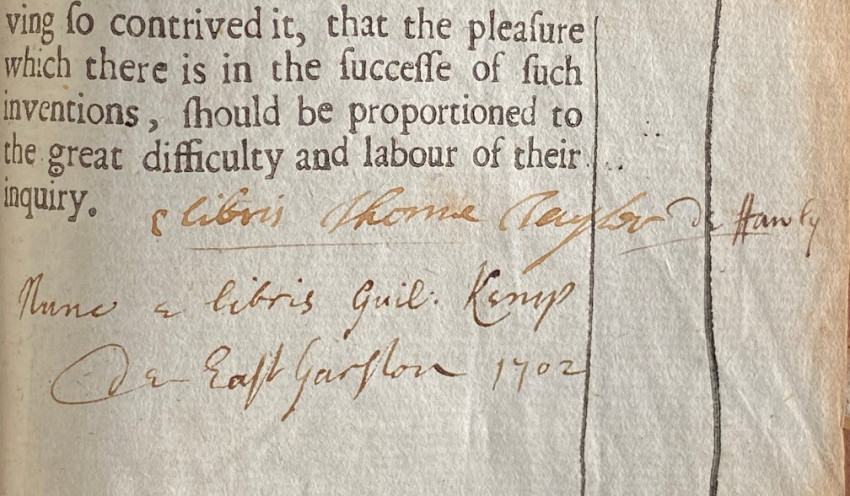 ving ſo contrived it, that the pleaſure
which there is in the ſucceſſe of ſuch
inventions, ſhould be proportioned to
the great difficulty and labour of their
inquiry.
e libris Thomæ Taylor de Hawly
Nunc e libris Guil: Kemp
De Eaſt Garſton 1702